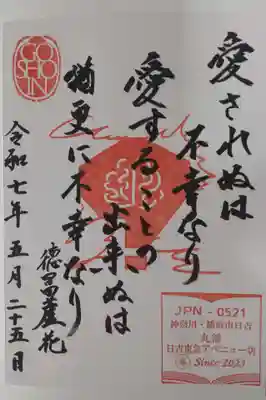 GO
SHO
IN
愛されぬは
不幸なり
愛することの
出来ぬは
猶更に不幸なり
徳冨蘆花
令和七年五月二十五日
JPN - 0521
神奈川・横浜市日吉
丸善
日吉東急アベニュー店
Since 2023